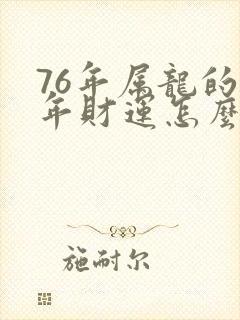 76年属龍的
年財運怎麽
施耐尔